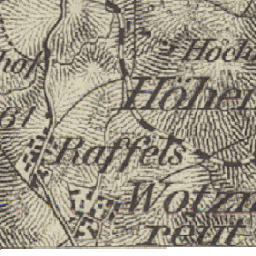 Hoch
hof
Höhen
61
Raffels
Wotzn
reut